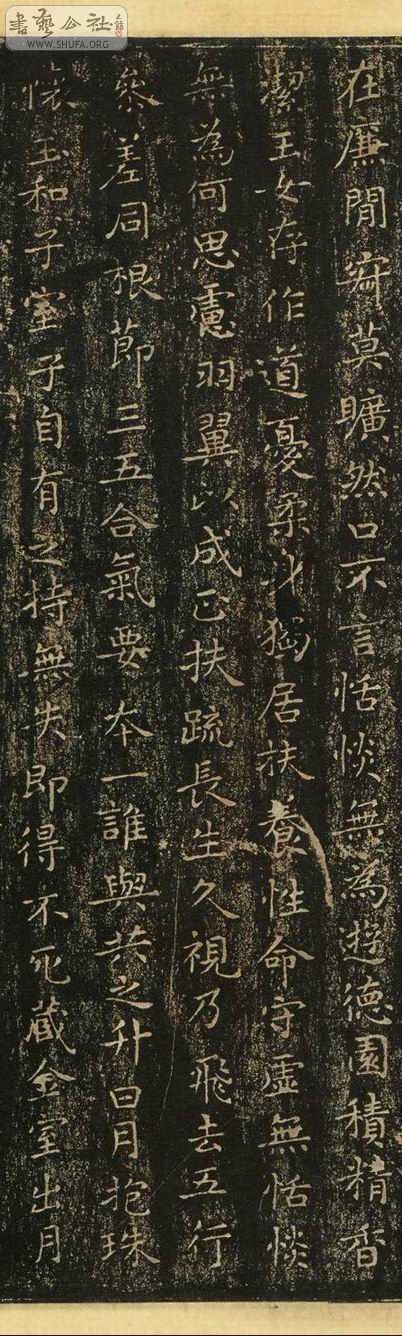 書藝公社
WWW.SHUFA.ORG
在廉間寂莫曠然口不言恬惔無為遊德園積精香
潔玉女存作道憂柔身獨居扶養性命守虛無恬惔
無為何思慮羽翼以成正扶疏長生久視乃飛去五行
參差同根莭三五合氣要本一誰與共之升日月抱珠
懷玉和子室子自有之持無失即得不死藏金室出月